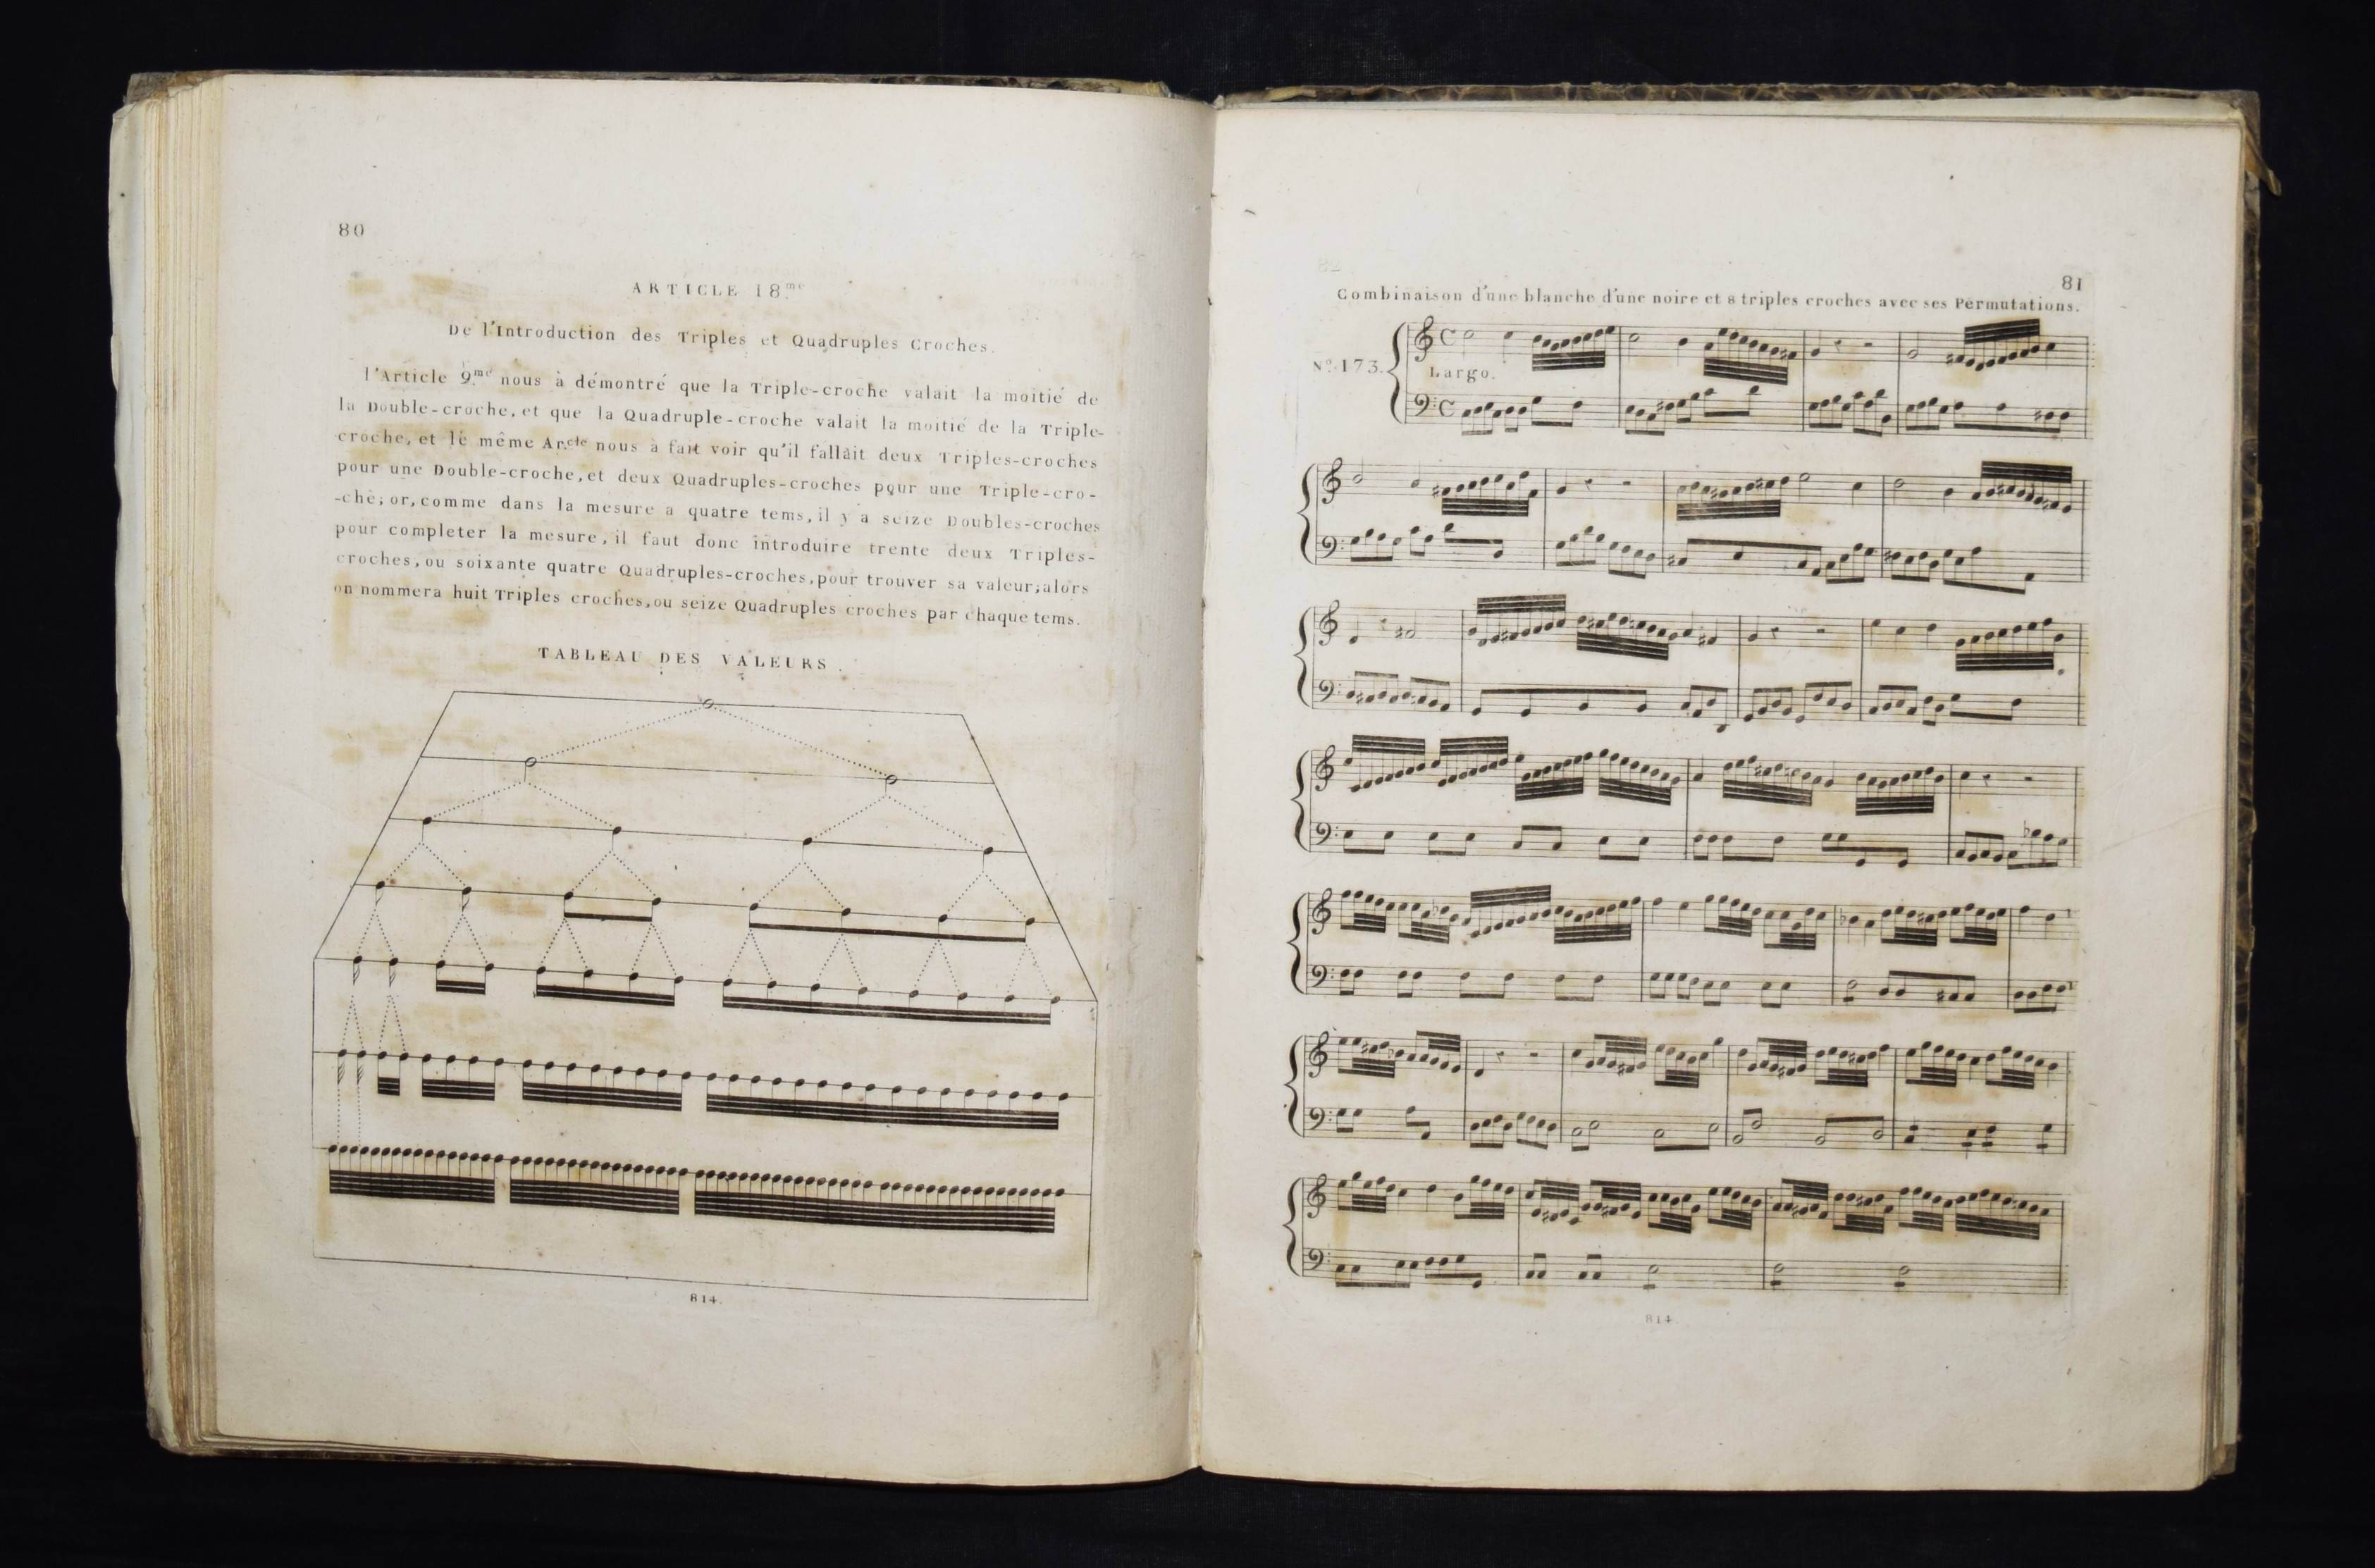 80
ARTICLE 18.me
De l'Introduction des Triples et Quadruples Croches.
l'Article 9.me nous à démontré que la Triple-croche valait la moitié de
la Double-croche, et que la Quadruple-croche valait la moitié de la Triple-
croche, et le même Ar.cle nous à fait voir qu'il fallâit deux Triples-croches
pour une Double-croche, et deux Quadruples-croches pour une Triple-cro-
-che; or, comme dans la mesure a quatre tems, il y a seize Doubles-croches
pour completer la mesure, il faut donc introduire trente deux Triples-
croches, ou soixante quatre Quadruples-croches, pour trouver sa valeur; alors
on nommera huit Triples croches, ou seize Quadruples croches par chaque tems.
TABLEAU DES VALEURS.
814.
81
Combinaison d'une blanche d'une noire et 8 triples croches avec ses Permutations.
No. 173.
Largo.
814.